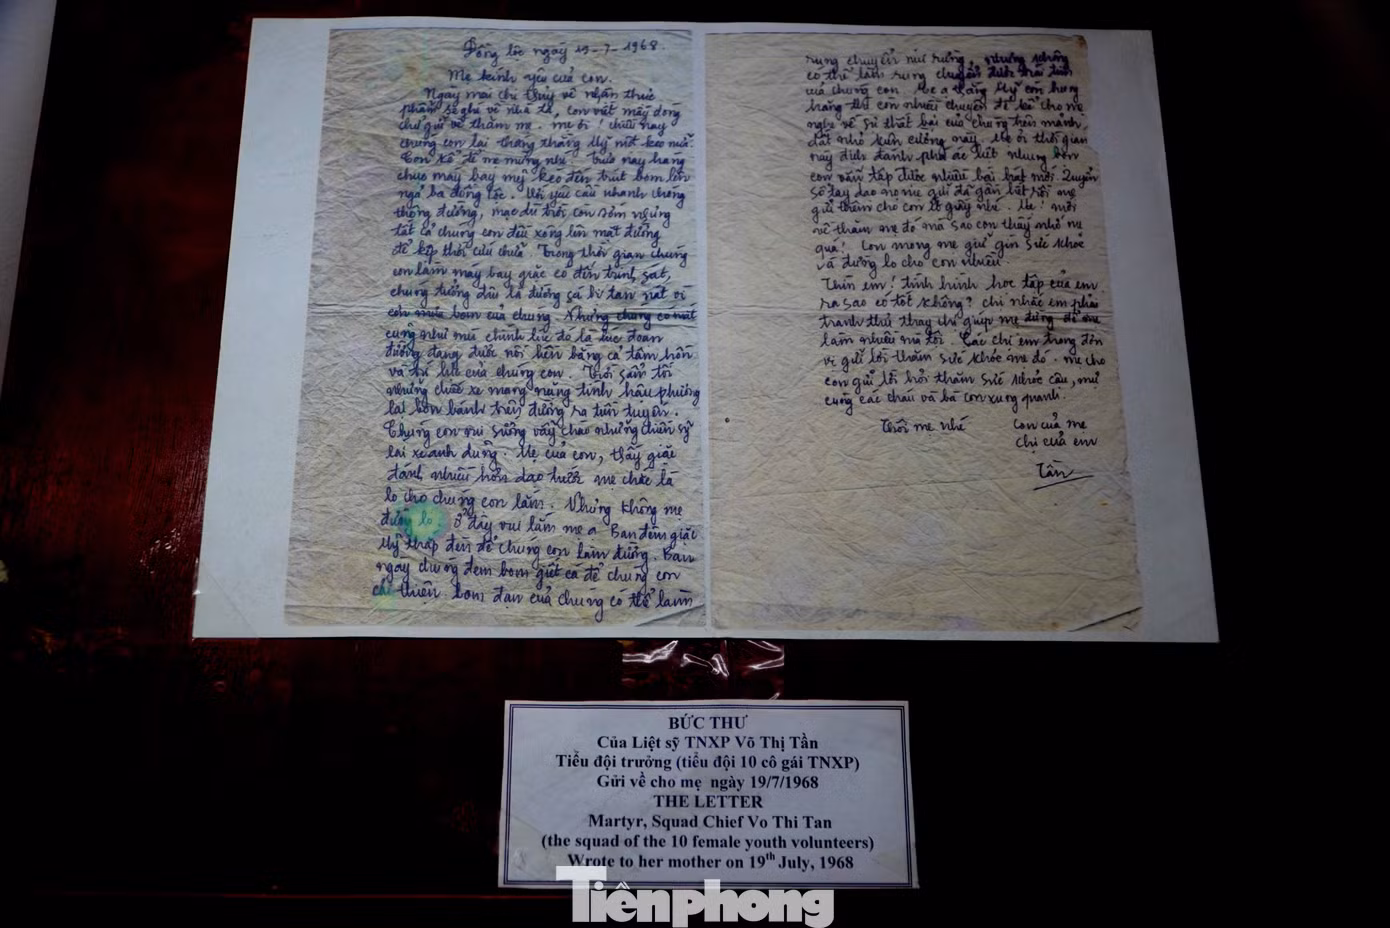 Đồng lộc ngày 19-7-1968.
Mẹ kính yêu của con.
Ngày mai chị Thủy về nhận thực
phẩm sẽ ghé về nhà ta, con viết mấy dòng
chữ gửi về thăm mẹ. mẹ ơi! chiều nay
chúng con lại thắng thằng Mỹ một keo nữa.
Con kể để mẹ mừng nhé. Trưa nay hàng
chục máy bay mỹ kéo đến trút bom lên
ngã ba đồng lộc. Với yêu cầu nhanh chóng
thông đường, mặc dù trời còn sớm nhưng
tất cả chúng con đều xông lên mặt đường
để kịp thời cứu chữa. Trong thời gian chúng
con làm máy bay giặc có đến trinh sát,
chúng tưởng đâu là đường sá bị tan nát vì
cơn mưa bom của chúng. Nhưng chúng có biết
chính lúc đó là lúc đoạn
đường đang được nối liền bằng cả tâm hồn
và trí lực của chúng con. Trời sẩm tối
những chiếc xe mang nặng tình hậu phương
lại bon bánh trên đường ra tiền tuyến.
Chúng con vui sướng vẫy chào những chiến sỹ
lái xe anh dũng. Mẹ của con, thấy giặc
đánh nhiều hơn dạo trước mẹ chắc là
lo cho chúng con lắm. Nhưng không mẹ
đừng lo ở đây vui lắm mẹ ạ. Ban đêm giặc
Mỹ thắp đèn để chúng con làm đường. Ban
ngày chúng đem bom giết cá để chúng con
cải thiện bom đạn của chúng có thể làm
rung chuyển núi rừng nhưng không
có thể làm rung chuyển được trái tim
của chúng con. Mẹ ạ thằng Mỹ còn hung
hăng thì con nhiều chuyện để kể cho mẹ
nghe về sự thất bại của chúng trên mảnh
đất nhỏ kiên cường này. Mẹ ơi thời gian
này địch đánh phá ác liệt nhưng bọn
con vẫn tập được nhiều bài hát mới. Quyển
sổ tay dạo nọ mẹ gửi đã gần hết rồi mẹ
gửi thêm cho con ít giấy nhé. Mẹ! mới
về thăm mẹ đó mà sao con thấy nhớ mẹ
quá! Con mong mẹ giữ gìn sức khỏe
và đừng lo cho con nhiều.
Thìn em! tình hình học tập của em
ra sao có tốt không? chị nhắc em phải
tranh thủ thay chị giúp mẹ đừng để mẹ
làm nhiều mà tội. Các chị em trong đơn
vị gửi lời thăm sức khỏe mẹ đó. mẹ cho
con gửi lời hỏi thăm sức khỏe cậu, mự
cùng các cháu và bà con xung quanh.
Thôi mẹ nhé
Con của mẹ
chị của em
Tần
BỨC THƯ
Của Liệt sỹ TNXP Võ Thị Tần
Tiểu đội trưởng (tiểu đội 10 cô gái TNXP)
Gửi về cho mẹ ngày 19/7/1968
THE LETTER
Martyr, Squad Chief Vo Thi Tan
(the squad of the 10 female youth volunteers)
Wrote to her mother on 19th July, 1968
Tiênphong